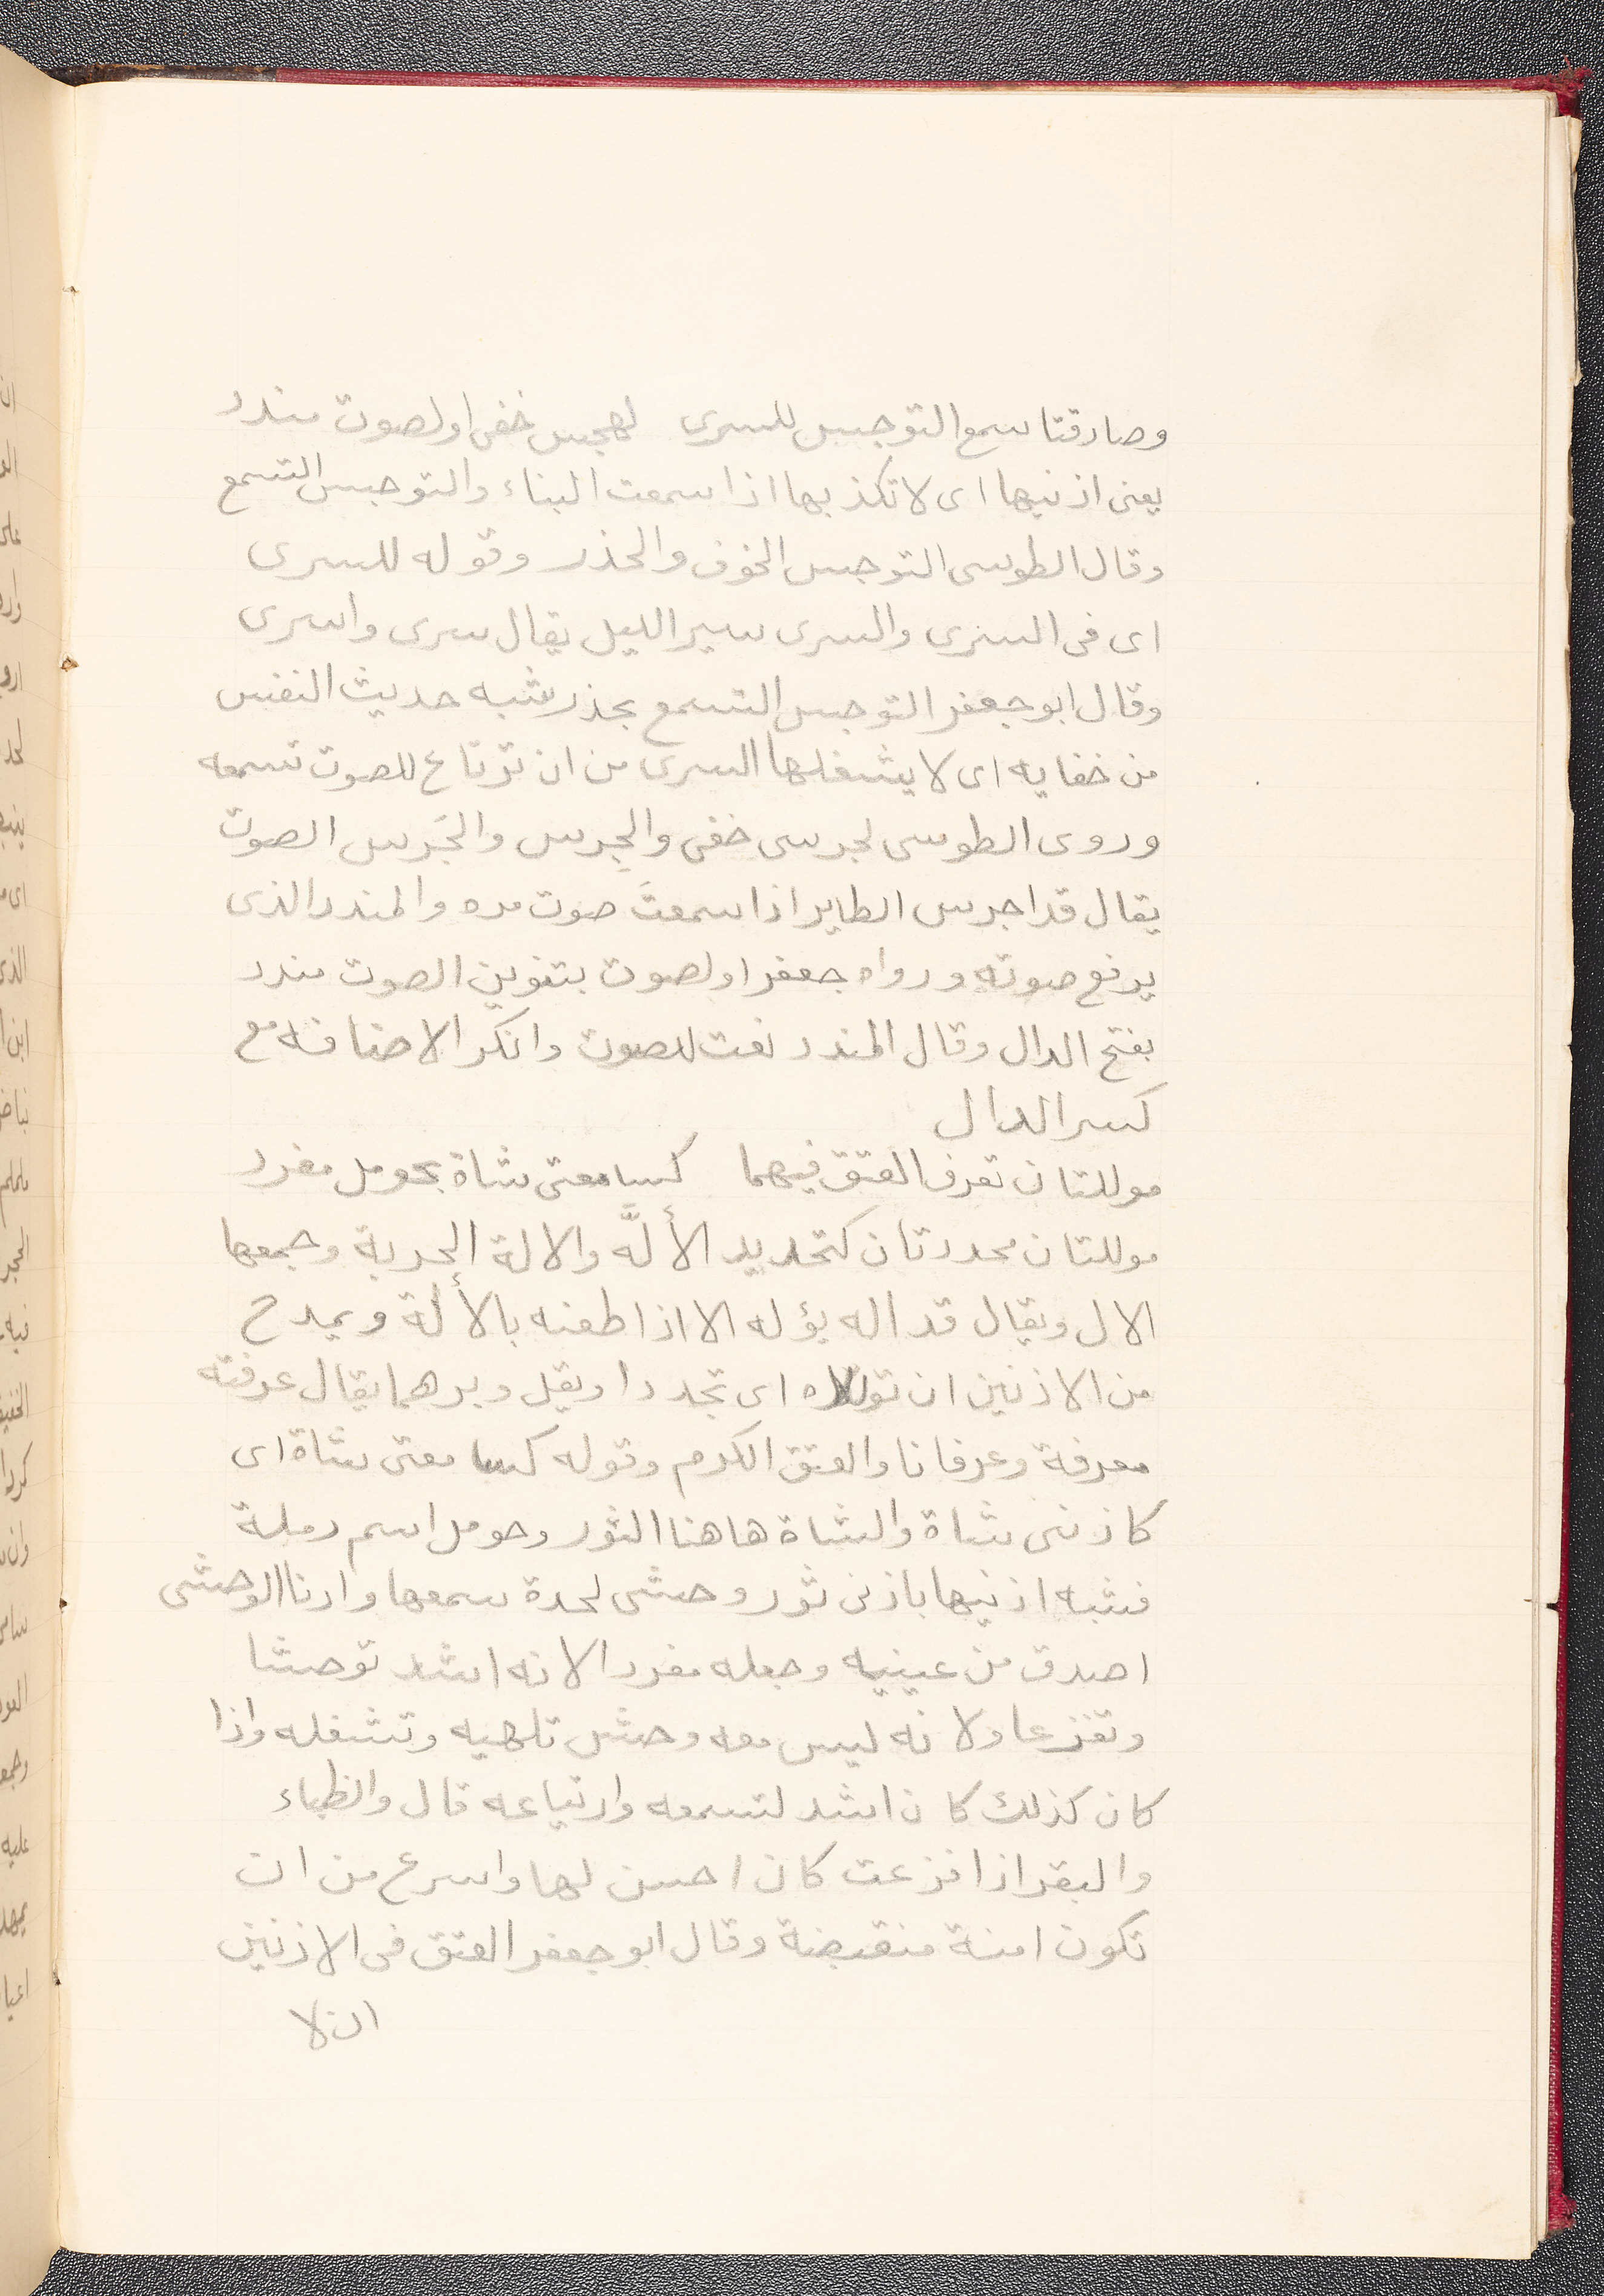 وصادقتا سمع التوجس للسرى لهجس خفى او لصوت مندد
يعنى اذنيها اى لا تكذبها اذا سمعت البناء والتوجس التسمع
وقال الطوسى التوجس الخوف والحذر وقوله للسرى
اى فى السرى والسرى سير الليل يقال سرى واسرى
وقال ابو جعفر التوجس التسمع بحذر شبه حديث النفس
من خفايه اى لا يشغلها السرى من ان ترتاع للصوت تسمعه
وروى الطوسى لجرس خفى والجِرس والجَرس الصوت
يقال قد اجرس الطاير اذا سمعتَ صوت مره والمندد الذى
يرفع صوته ورواه جعفر او لصوت بتنوين الصوت مندد
بفتح الدال وقال المندد نعت للصوت وانكر الاضافه مع
كسر الدال
موللتان تعرف العتق فيهما كسامعتى شاة بحومل مفرد
موللتان محددتان كتحديد الألَّه والالة الحربة وجمعها
الال ويقال قد اله يؤله الا اذا طعنه بالألة ويمدح
من الاذنين ان اى تحددا ويقل وبرهما يقال عرفته
معرفة وعرفانا والعتق الكرم وقوله كسا معتى شاة اى
كاذنى شاة والشاة هاهنا الثور وحومل اسم رملة
فشبه اذنيها باذنى ثور وحشى لحدة سمعها وادنا الوحشى
اصدق من عينيه وجعله مفردا لانه اشد توحشا
وتفزعا ولانه ليس معه وحش تلهيه وتشغله واذا
كان كذلك كان اشد لتسمعه وارتياعه قال والظباء
والبقر اذا فزعت كان احسن لها واسرع من ان
تكون امنة منقبضة وقال ابو جعفر العتق فى الاذنين
ان لا